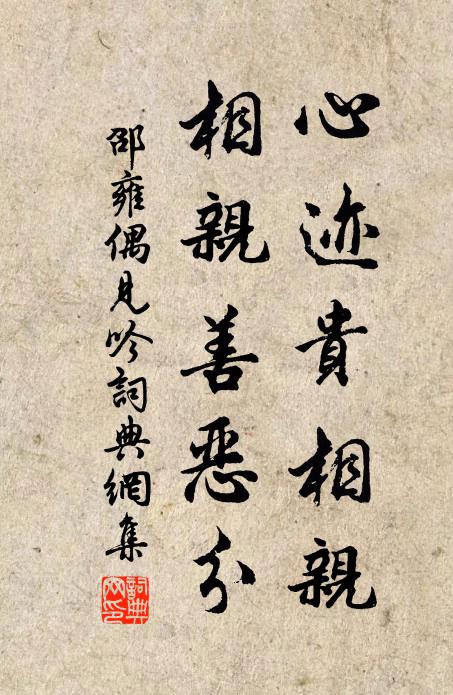 心迹貴相親
相親善惡分
邵雍偶見吟詞典網集
詞典網印